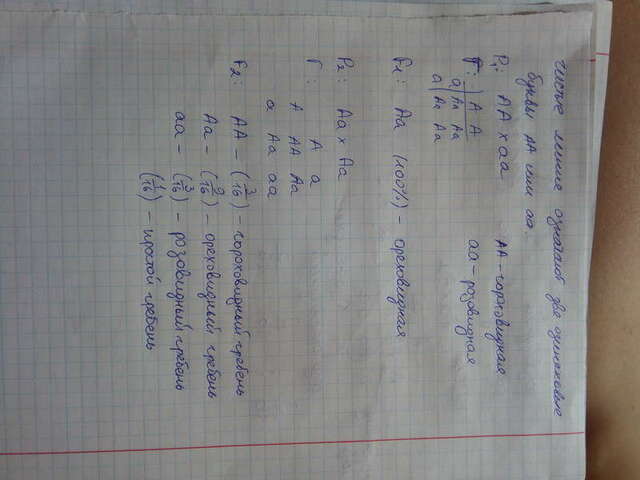 чистые линии означают две одинаковые
буквы АА или аа.
P₁: АА х аа    АА - гороховидная
Г: | А А    аа - розовидная
а | Аа Аа
а | Аа Аа
F₁: Аа (100%) - ореховидная
P₂: Аа х Аа
Г: А а
А АА Аа
а Аа аа
F₂: АА - (3/16) - гороховидный гребень
Аа - (9/16) - ореховидный гребень
аа - (3/16) - розовидный гребень
(1/16) - простой гребень